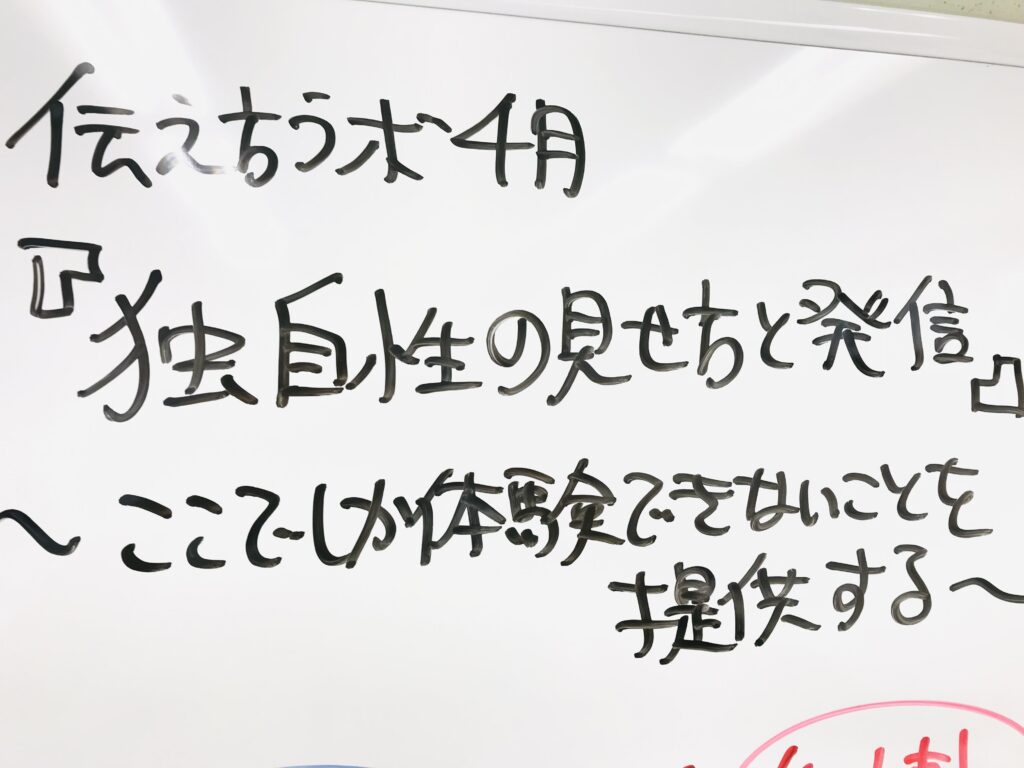 伝え方ラボ 4月
『独自性の見せ方と発信』
～ここでしか体験できないことを
提供する～